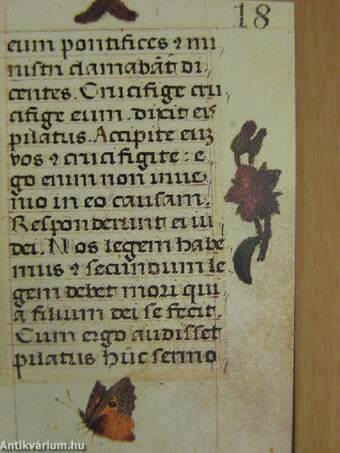 18
eum pontifices ⁊ mi
nistri clamabāt di
centes. Crucifige cru
cifige eum. dixit eis
pilatus. Accipite eū
vos ⁊ crucifigite: e
go enim non inue
nio in eo causam.
Responderunt ei iu
dei. Nos legem habe
mus ⁊ secundum le
gem debet mori qui
a filium dei se fecit.
Cum ergo audisset
pilatus hūc sermo
Antikvárium.hu